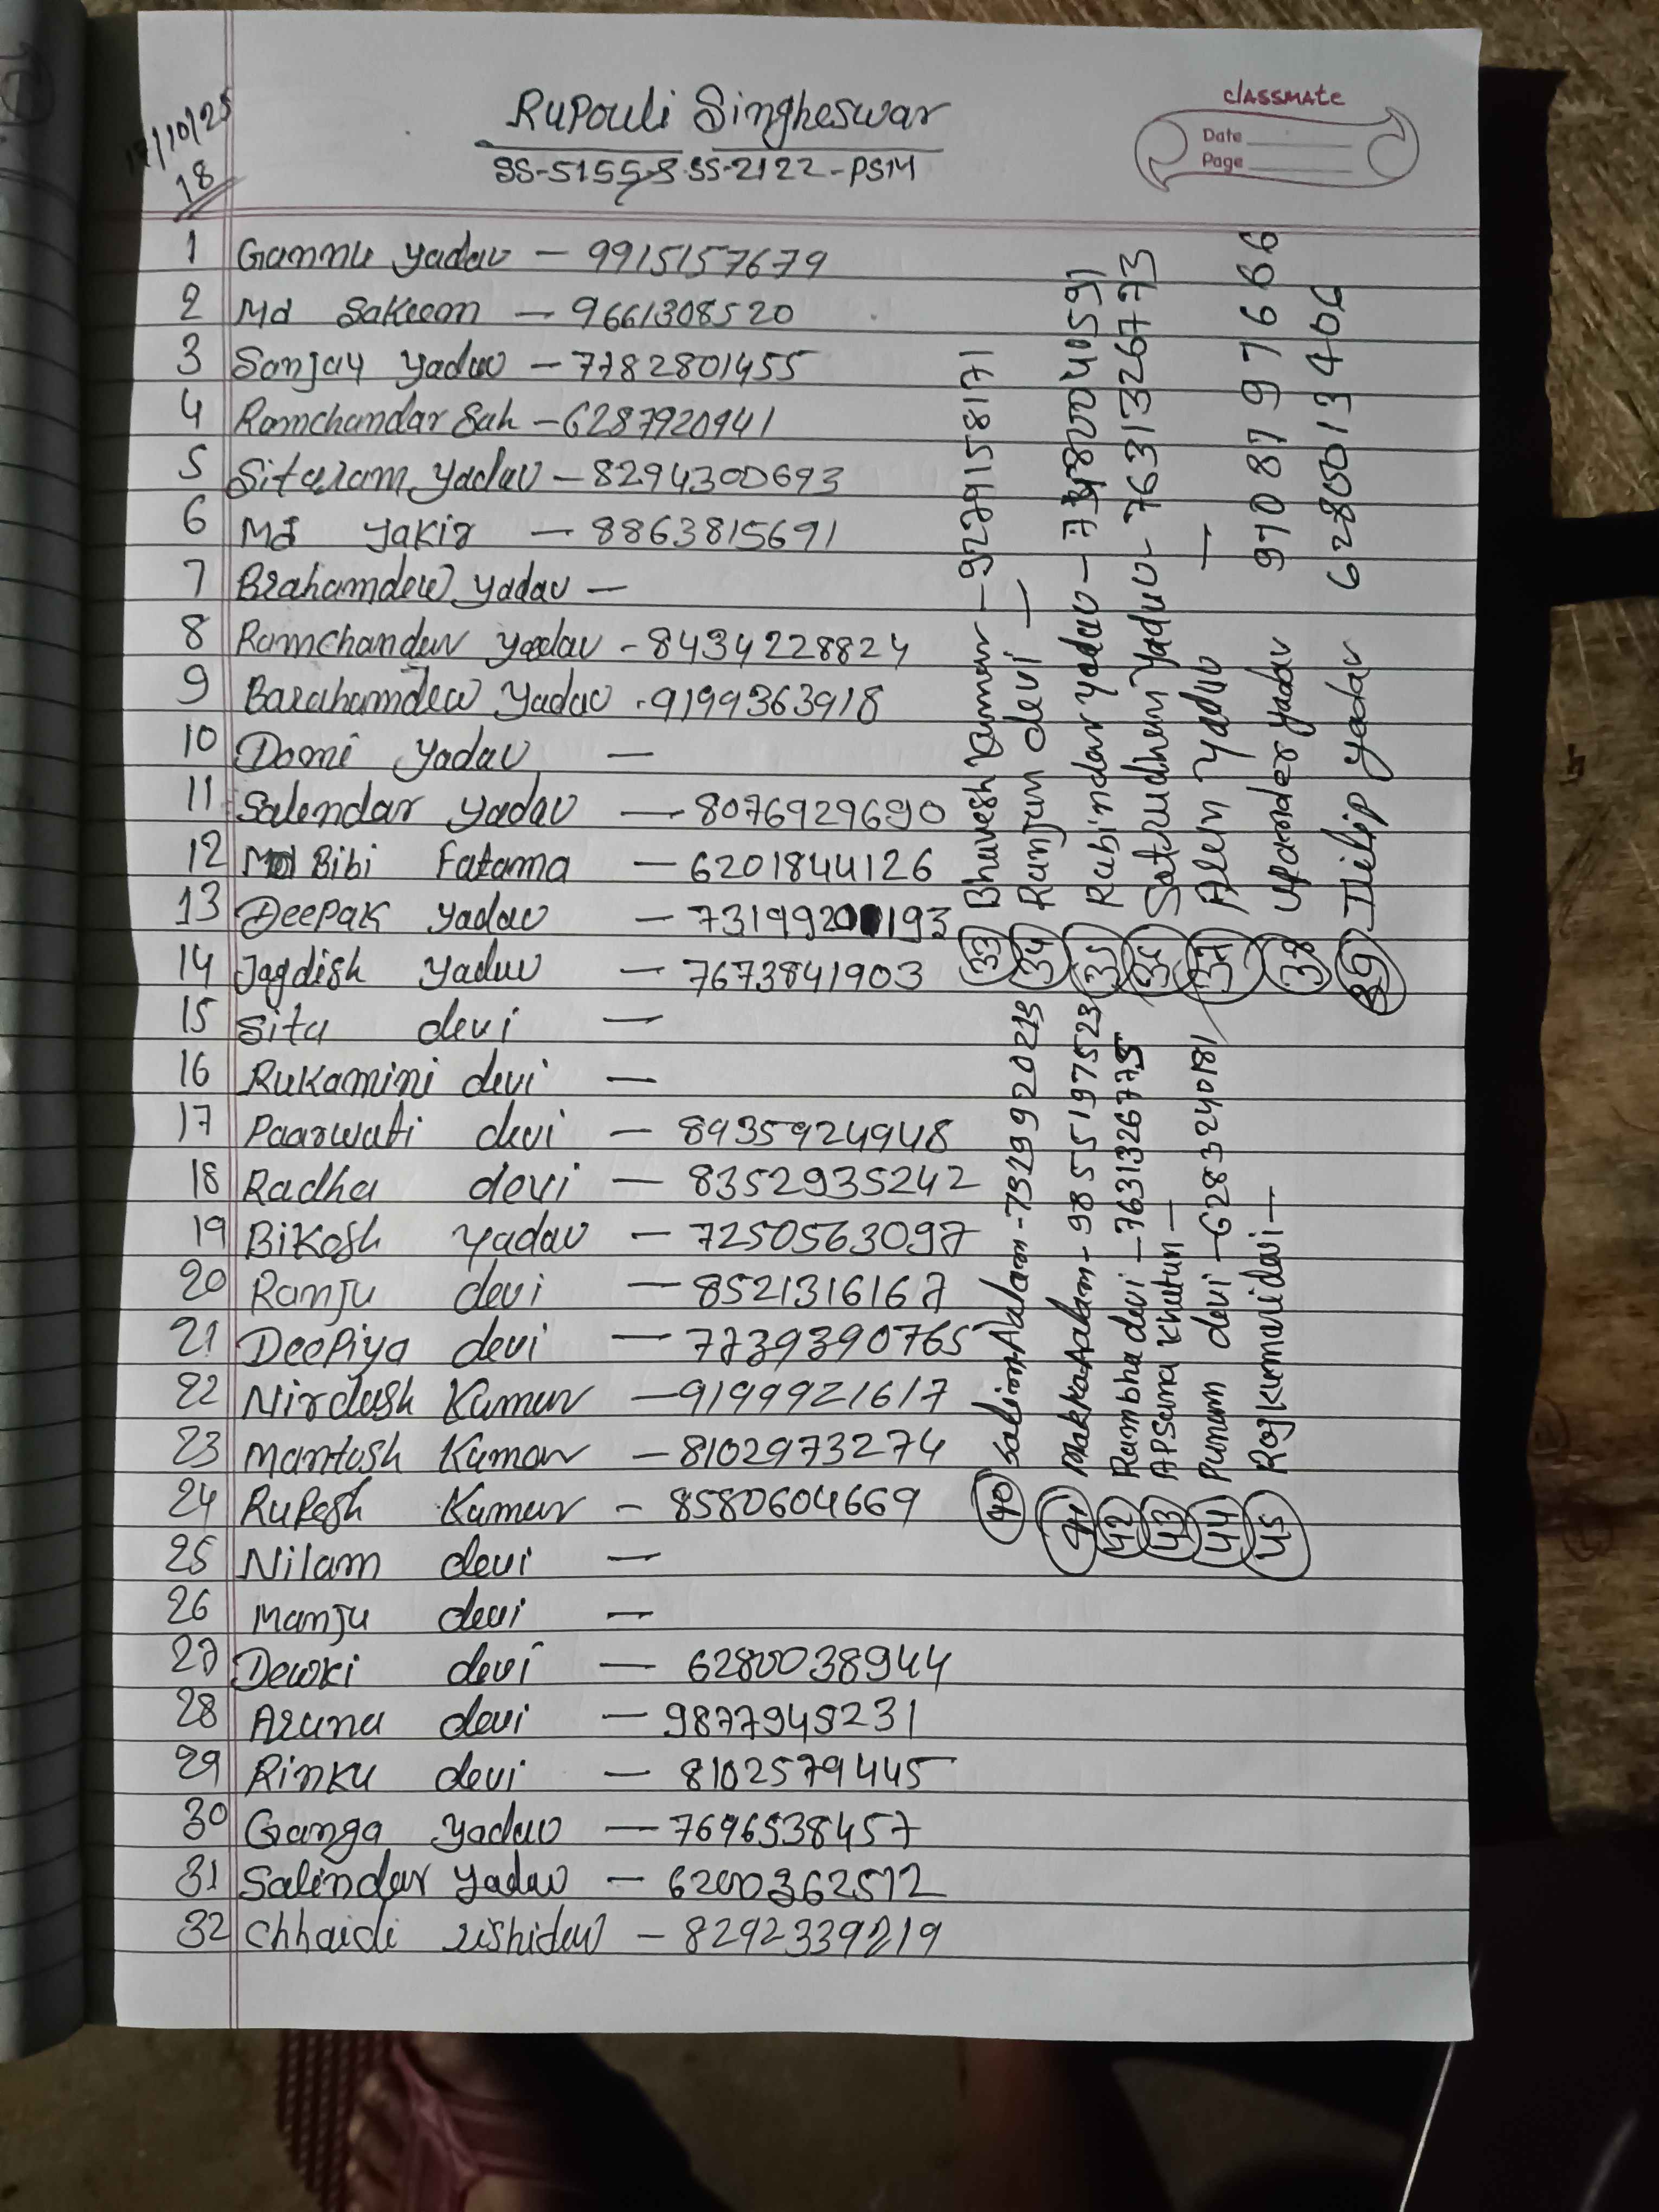 17/10/25
18
Rupouli Singheswar
SS-5155-8 SS-2122-PSM
classmate
Date
Page
1 Gannu Yadav - 9915157679
2 Md Sakeem - 9661308520
3 Sanjay Yadav - 7782801455
4 Ramchandar Sah - 6287920941
5 Sitaram Yadav - 8294300693
6 Md Jakir - 8863815691
7 Brahamdew Yadav -
8 Ramchandar Yadav - 8434228824
9 Barahamdew Yadav - 9199363918
10 Domi Yadav -
11 Salendar Yadav - 8076929690
12 Bibi Fatama - 6201844126
13 Deepak Yadav - 7319920193
14 Jagdish Yadav - 7673841903
15 Sita devi -
16 Rukamini devi -
17 Paarwati devi - 8935924948
18 Radha devi - 8352935242
19 Bikash Yadav - 7250563097
20 Ranju devi - 8521316167
21 Deepiya devi - 7739390765
22 Nirdesh Kumar - 9199921617
23 Mantosh Kumar - 8102973274
24 Rupesh Kumar - 8580604669
25 Nilam devi -
26 Manju devi -
27 Dewki devi - 6280038944
28 Aruna devi - 9877945231
29 Rinku devi - 8102579445
30 Ganga Yadav - 7696538457
31 Salindar Yadav - 6200362512
32 Chhaidi rishidew - 8292339219
33 Bhavesh Kumar - 9279158171
34 Ranjun devi -
35 Rabindar Yadav -
36 Satrudhan Yadav - 7631326773
37 Arun Yadav -
38 Upander Yadav 9708797666
39 Dilip Yadav 6280013406
40 Salim Aalam - 7529920213
41 Makha Aalam - 9855197523
42 Rambha devi - 7631326775
43 Apsana Khatun -
44 Punam devi - 6283240181
45 Rajkumari devi -